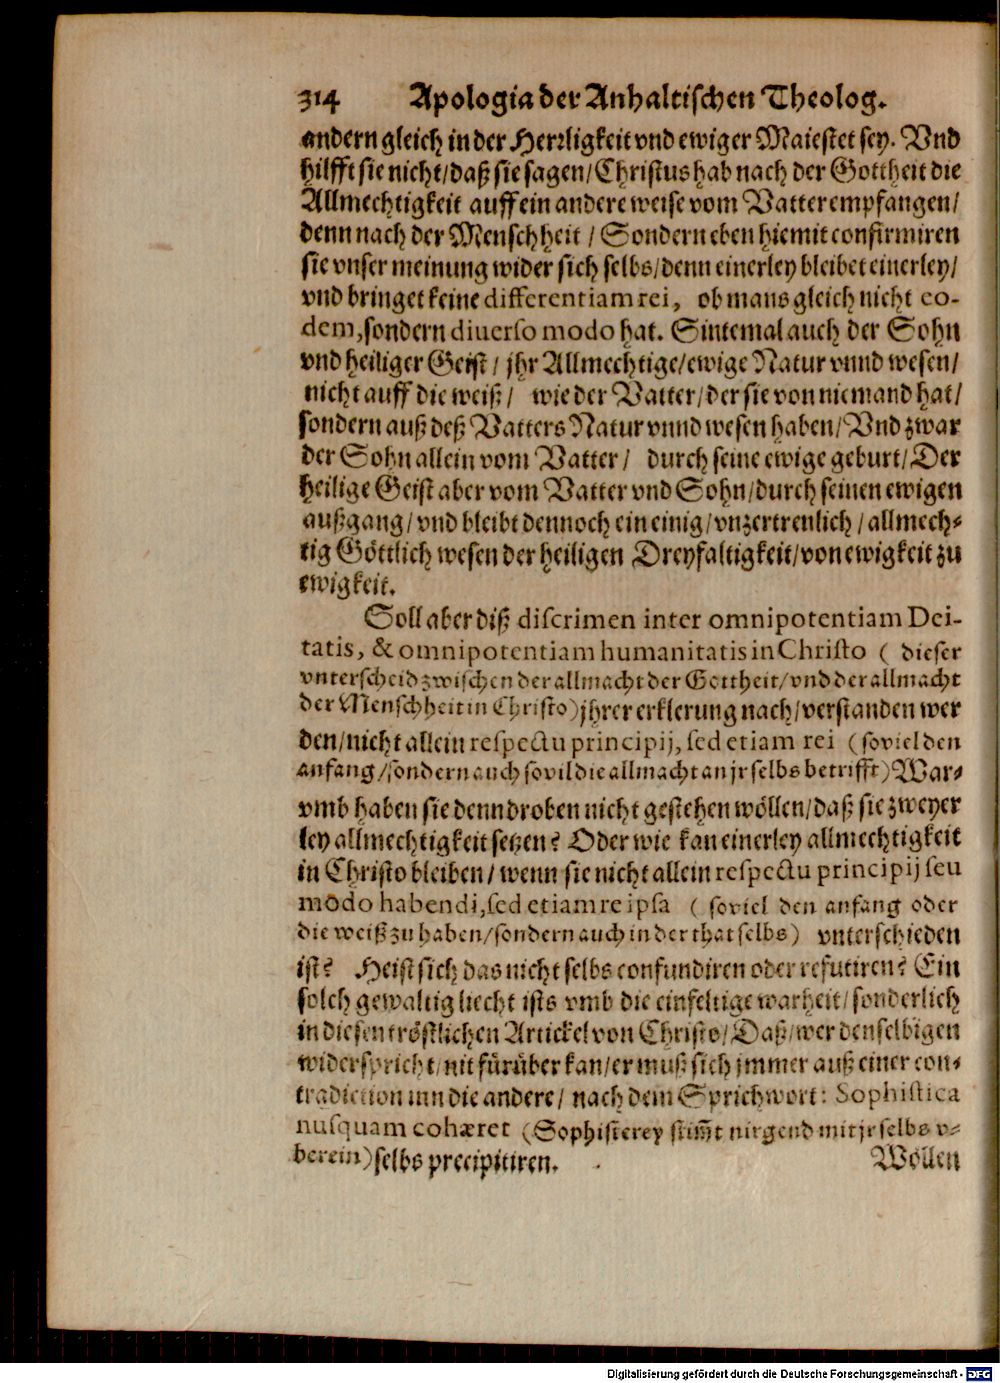 314 Apologia der Anhaltischen Theolog.
andern gleich in der Herꝛligkeit vnd ewiger Maiestet sey. Vnd
hilfft sie nicht/daß sie sagen/Christus hab nach der Gottheit die
Allmechtigkeit auff ein andere weise vom Vatter empfangen/
denn nach der Menschheit / Sondern eben hiemit confirmiren
sie vnser meinung wider sich selbs/denn einerley bleibet einerley/
vnd bringet keine differentiam rei, ob mans gleich nicht eo-
dem, sondern diuerso modo hat. Sintemal auch der Sohn
vnd heiliger Geist / jhr Allmechtige/ewige Natur vnnd wesen/
nicht auff die weiß / wie der Vatter/der sie von niemand hat/
sondern auß deß Vatters Natur vnnd wesen haben/Vnd zwar
der Sohn allein vom Vatter / durch seine ewige geburt/Der
heilige Geist aber vom Vatter vnd Sohn/durch seinen ewigen
außgang/vnd bleibt dennoch ein einig/vnzertrenlich/allmech-
tig Göttlich wesen der heiligen Dreyfaltigkeit/von ewigkeit zu
ewigkeit.
Soll aber diß discrimen inter omnipotentiam Dei-
tatis, & omnipotentiam humanitatis in Christo ( dieser
vnterscheid zwischen der allmacht der Gottheit/vnd der allmacht
der Menschheit in Christo) jhrer erklerung nach/verstanden wer
den/nicht allein respectu principij, sed etiam rei (soviel den
anfang/sondern auch sovil die allmacht an jr selbs betrifft) War-
vmb haben sie denn droben nicht gestehen wöllen/daß sie zweyer
ley allmechtigkeit setzen? Oder wie kan einerley allmechtigkeit
in Christo bleiben/wenn sie nicht allein respectu principij seu
modo habendi, sed etiam re ipsa ( soviel den anfang oder
die weiß zu haben/sondern auch in der that selbs) vnterschieden
ist? Heist sich das nicht selbs confundiren oder refutiren? Ein
solch gewaltig liecht ists vmb die einfeltige warheit/sonderlich
in diesen tröstlichen Artickel von Christo/Daß/wer denselbigen
widerspricht/nit fürüber kan/er muß sich jmmer auß einer con-
tradiction inn die andere/ nach dem Sprichwort: Sophistica
nusquam cohæret (Sophisterey stim̃t nirgend mit jr selbs v-
berein) selbs precipitiren.
Wöllen
Digitalisierung gefördert durch die Deutsche Forschungsgemeinschaft - DFG